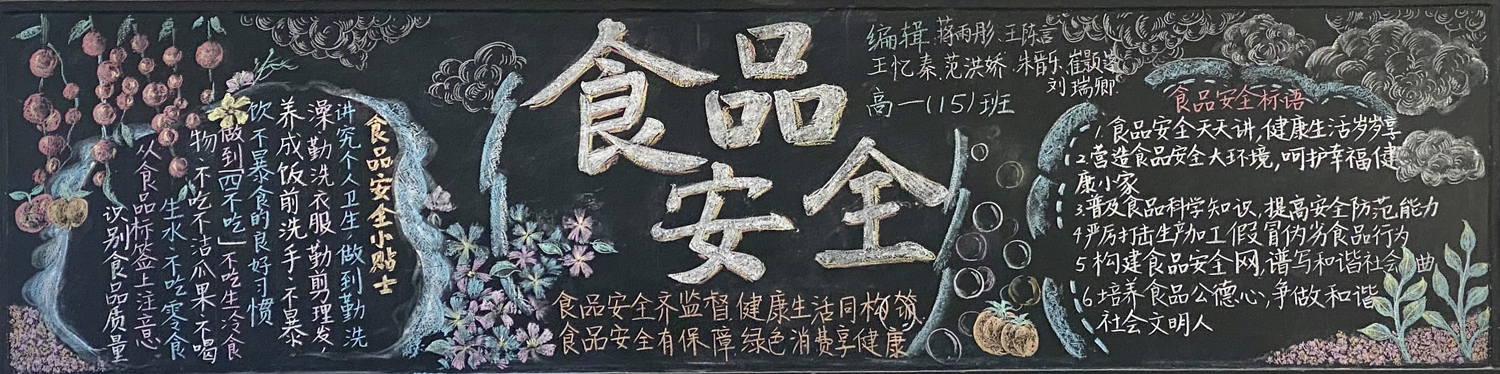 食品安全小贴士
讲究个人卫生,做到勤洗
澡、勤洗衣服、勤剪理发,
养成饭前洗手、不暴
饮不暴食的良好习惯
做到「四不吃」不吃生冷食
物、不吃不洁瓜果、不喝
生水、不吃零食
从食品标签上注意
识别食品质量
食品
安全
食品安全齐监督,健康生活同构筑
食品安全有保障,绿色消费享健康
编辑:蒋雨彤、王陈言
王忆秦、范洪娇、朱
刘瑞卿
高一(15)班
食品安全标语
1.食品安全天天讲,健康生活岁岁享
2营造食品安全大环境,呵护幸福健
康小家
3普及食品科学知识,提高安全防范能力
4严厉打击生产加工假冒伪劣食品行为
5构建食品安全网,谱写和谐社会曲
6培养食品公德心,争做和谐
社会文明人